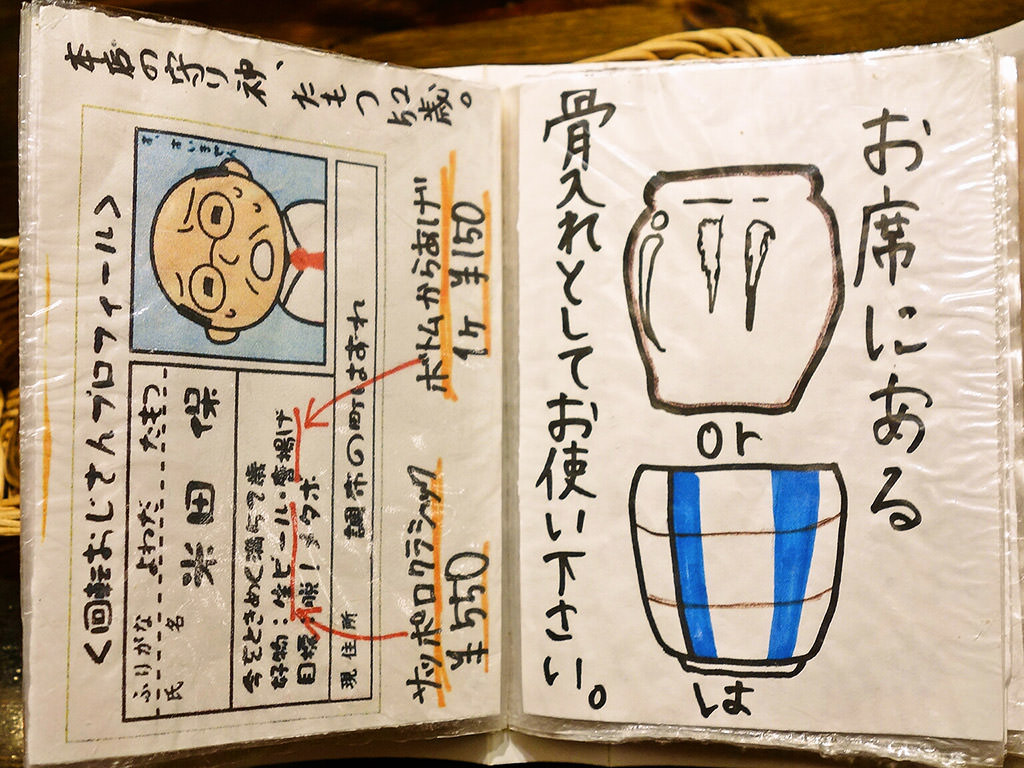 お席にある
or
は
骨入れとしてお使い下さい。
本店の守り神、たもつ52歳。
<回転おじさんプロフィール>
す、すいません
ふりがな よねだ たもつ
氏名 米田 保
今をときめく満52歳
好物：生ビール・唐揚げ
目標：脱！メタボ
現住所 調布の町はずれ
サッポロクラシック
¥550
ボトムからあげ
1ケ ¥150